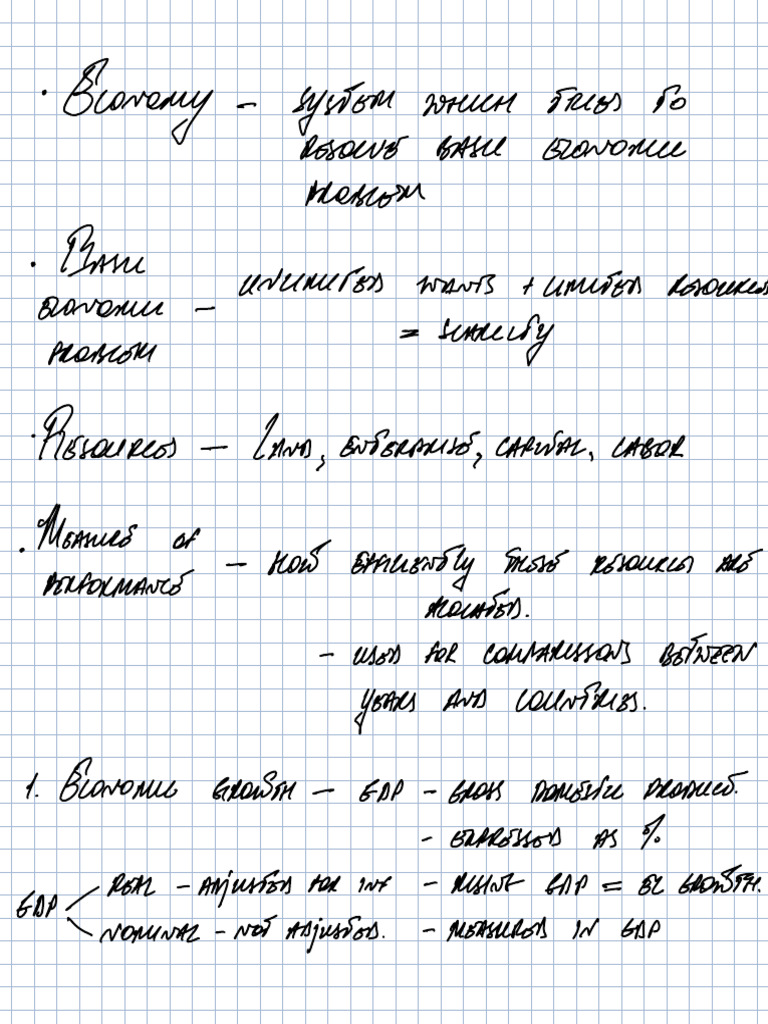 · Economy – system which tries to
resolve basic economic
problem
· Basic
economic – unlimited wants + limited resources
problem = scarcity
· Resources – Land, enterprise, capital, labor
· Measure of
performance – how efficiently these resources are
alocated.
– used for comparissons between
years and countries.
1. Economic growth – GDP – gross domestic product.
– expressed as %
GDP
real – adjusted for inf – rising GDP = ec growth.
nominal – not adjusted. – measured in GDP